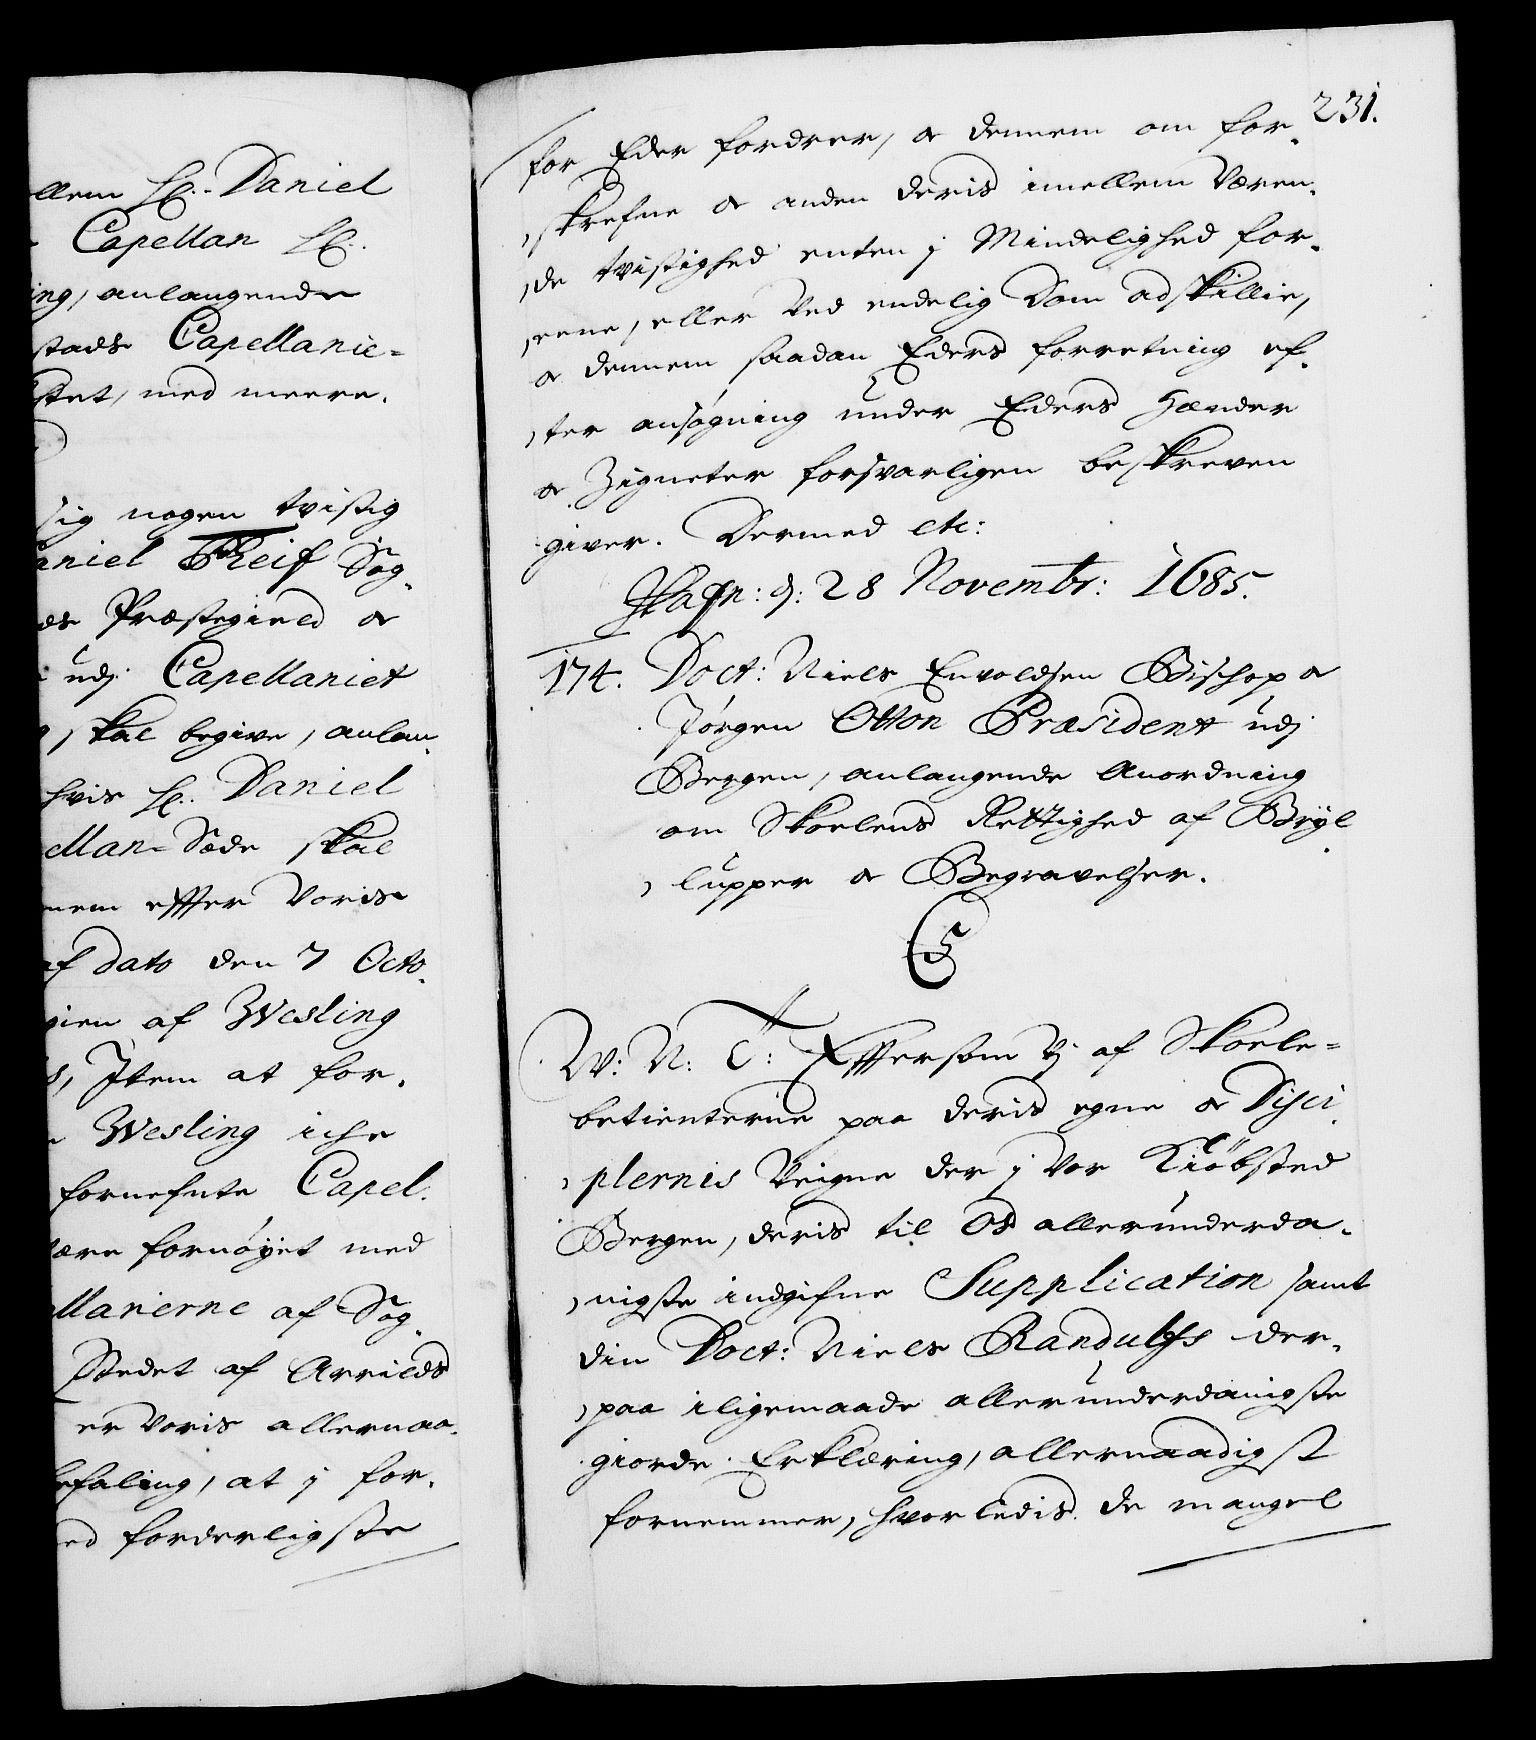 llem Hr. Daniel
Capellan Hr.
ing, anlangende
stads Capellanie=
stet, med meere.
sig nogen tvistig
aniel Reif Sog¬
ds Præstegield oc
udj Capellaniet
, skal begive, anlan¬
hvis Hr. Daniel
ellan-Sæde skal
nem effter Voris
af dato den 7 Octo¬
gien af Wesling
s, Item at for¬
Wesling iche
fornefnte Capel¬
ære fornøyet med
llanierne af Sog¬
Stedet af Arrilds
er voris allernaa¬
befaling, at j for¬
ed forderligste
231.
for Eder fordrer, oc dennem om for¬
skrefne oc anden deris imellem Væren¬
de tvistighed enten j Mindelighed for¬
eene, eller ved endelig Dom adskillie,
oc dennem saadan Eders forretning ef¬
ter ansøgning under Eders Hænder
oc Zigneter forsvarligen beskreven
giver. Dermed etc:
Hafn: d: 28 Novembr: 1685.
174. Doct: Niels Envoldsen Bischop oc
Jørgen Otton Præsident udj
Bergen, anlangende Anordning
om Skoelens Rettighed af Bryl
lupper oc Begravelser.
C5
W: N: C: Effersom Vj af Skoele=
betienterne paa deris egne oc Disci
plernis Veigne der j vor Kiöbsted
Bergen, deris til Os allerunderda¬
nigste indgifne Supplication samt
din Doct: Niels Randulfs der¬
paa iligemaade allerunderdanigste
giorde Erklæring, allernaadigst
fornemmer, hvorledis de mangel